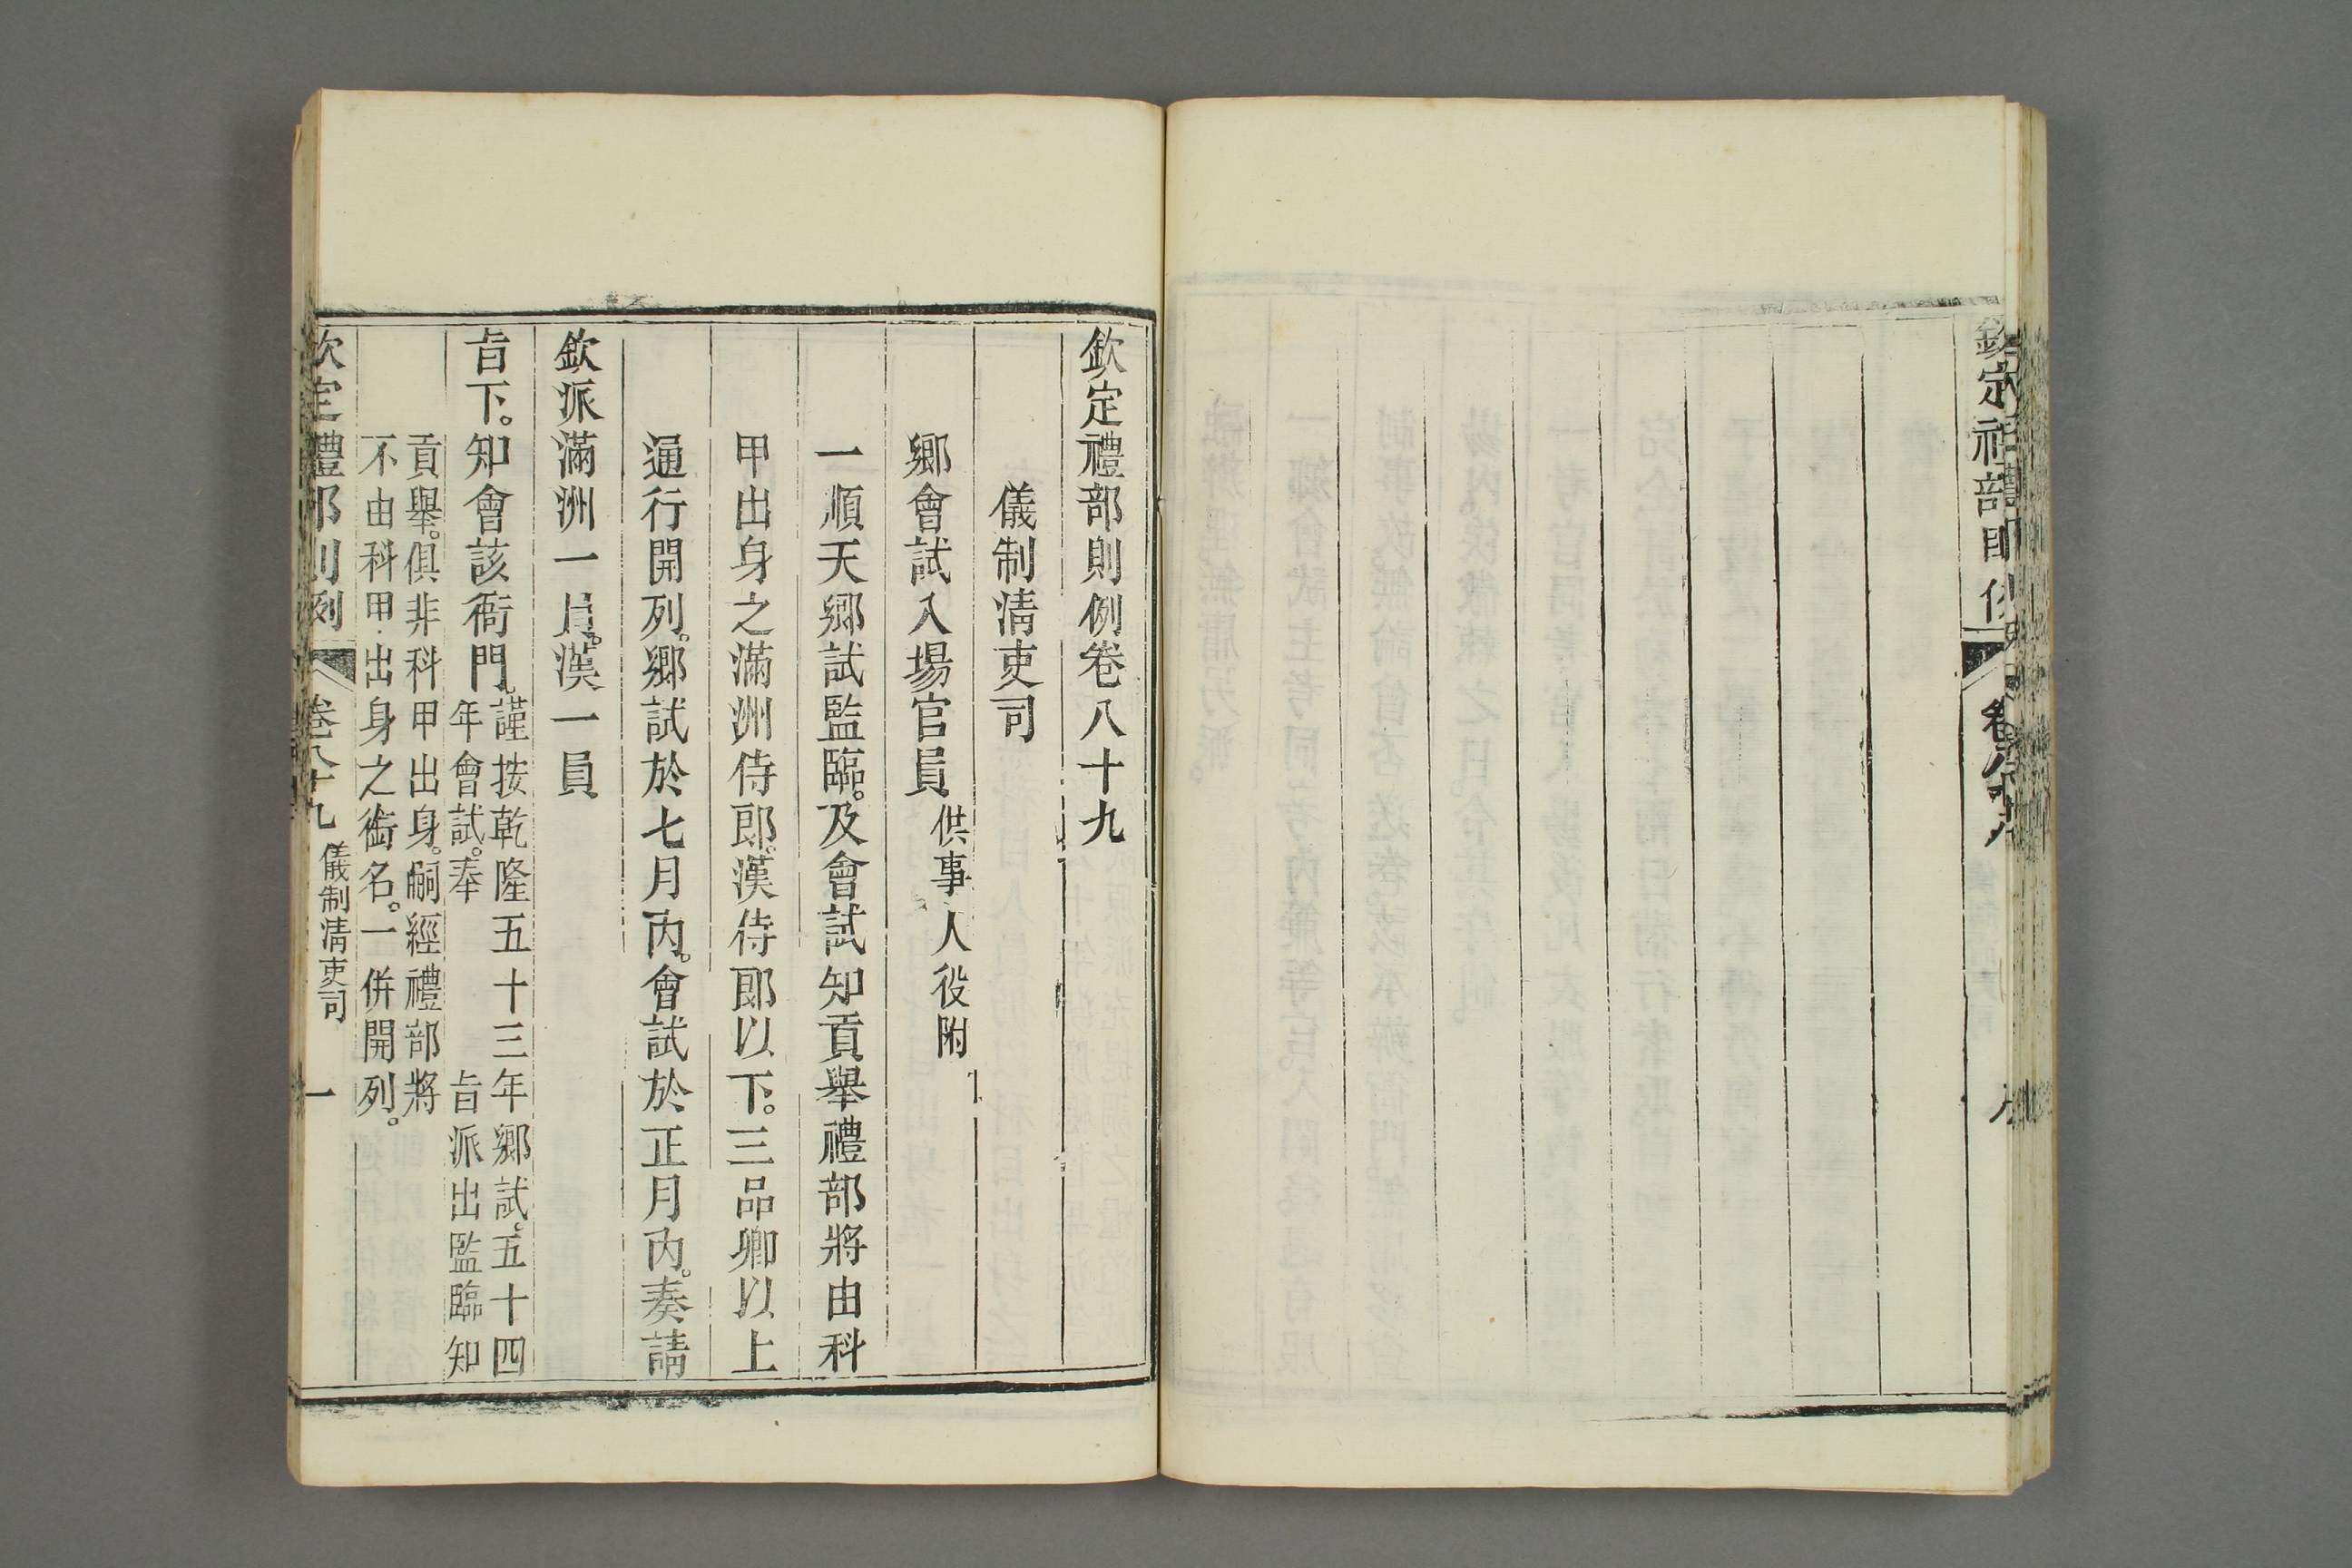 欽定禮部則例卷八十九
儀制清吏司
鄉會試入場官員供事人役附
一順天鄉試監臨。及會試知貢舉禮部將由科
甲出身之滿洲侍郎。漢侍郎以下。三品卿以上
通行開列。鄉試於七月內。會試於正月內。奏請
欽派滿洲一員。漢一員
旨下。知會該衙門。謹按乾隆五十三年鄉試。五十四
年會試。奉 旨派出監臨知
貢舉。俱非科甲出身。嗣經禮部將
不由科甲出身之銜名。一併開列。
欽定禮部則例 卷八十九 儀制清吏司 一